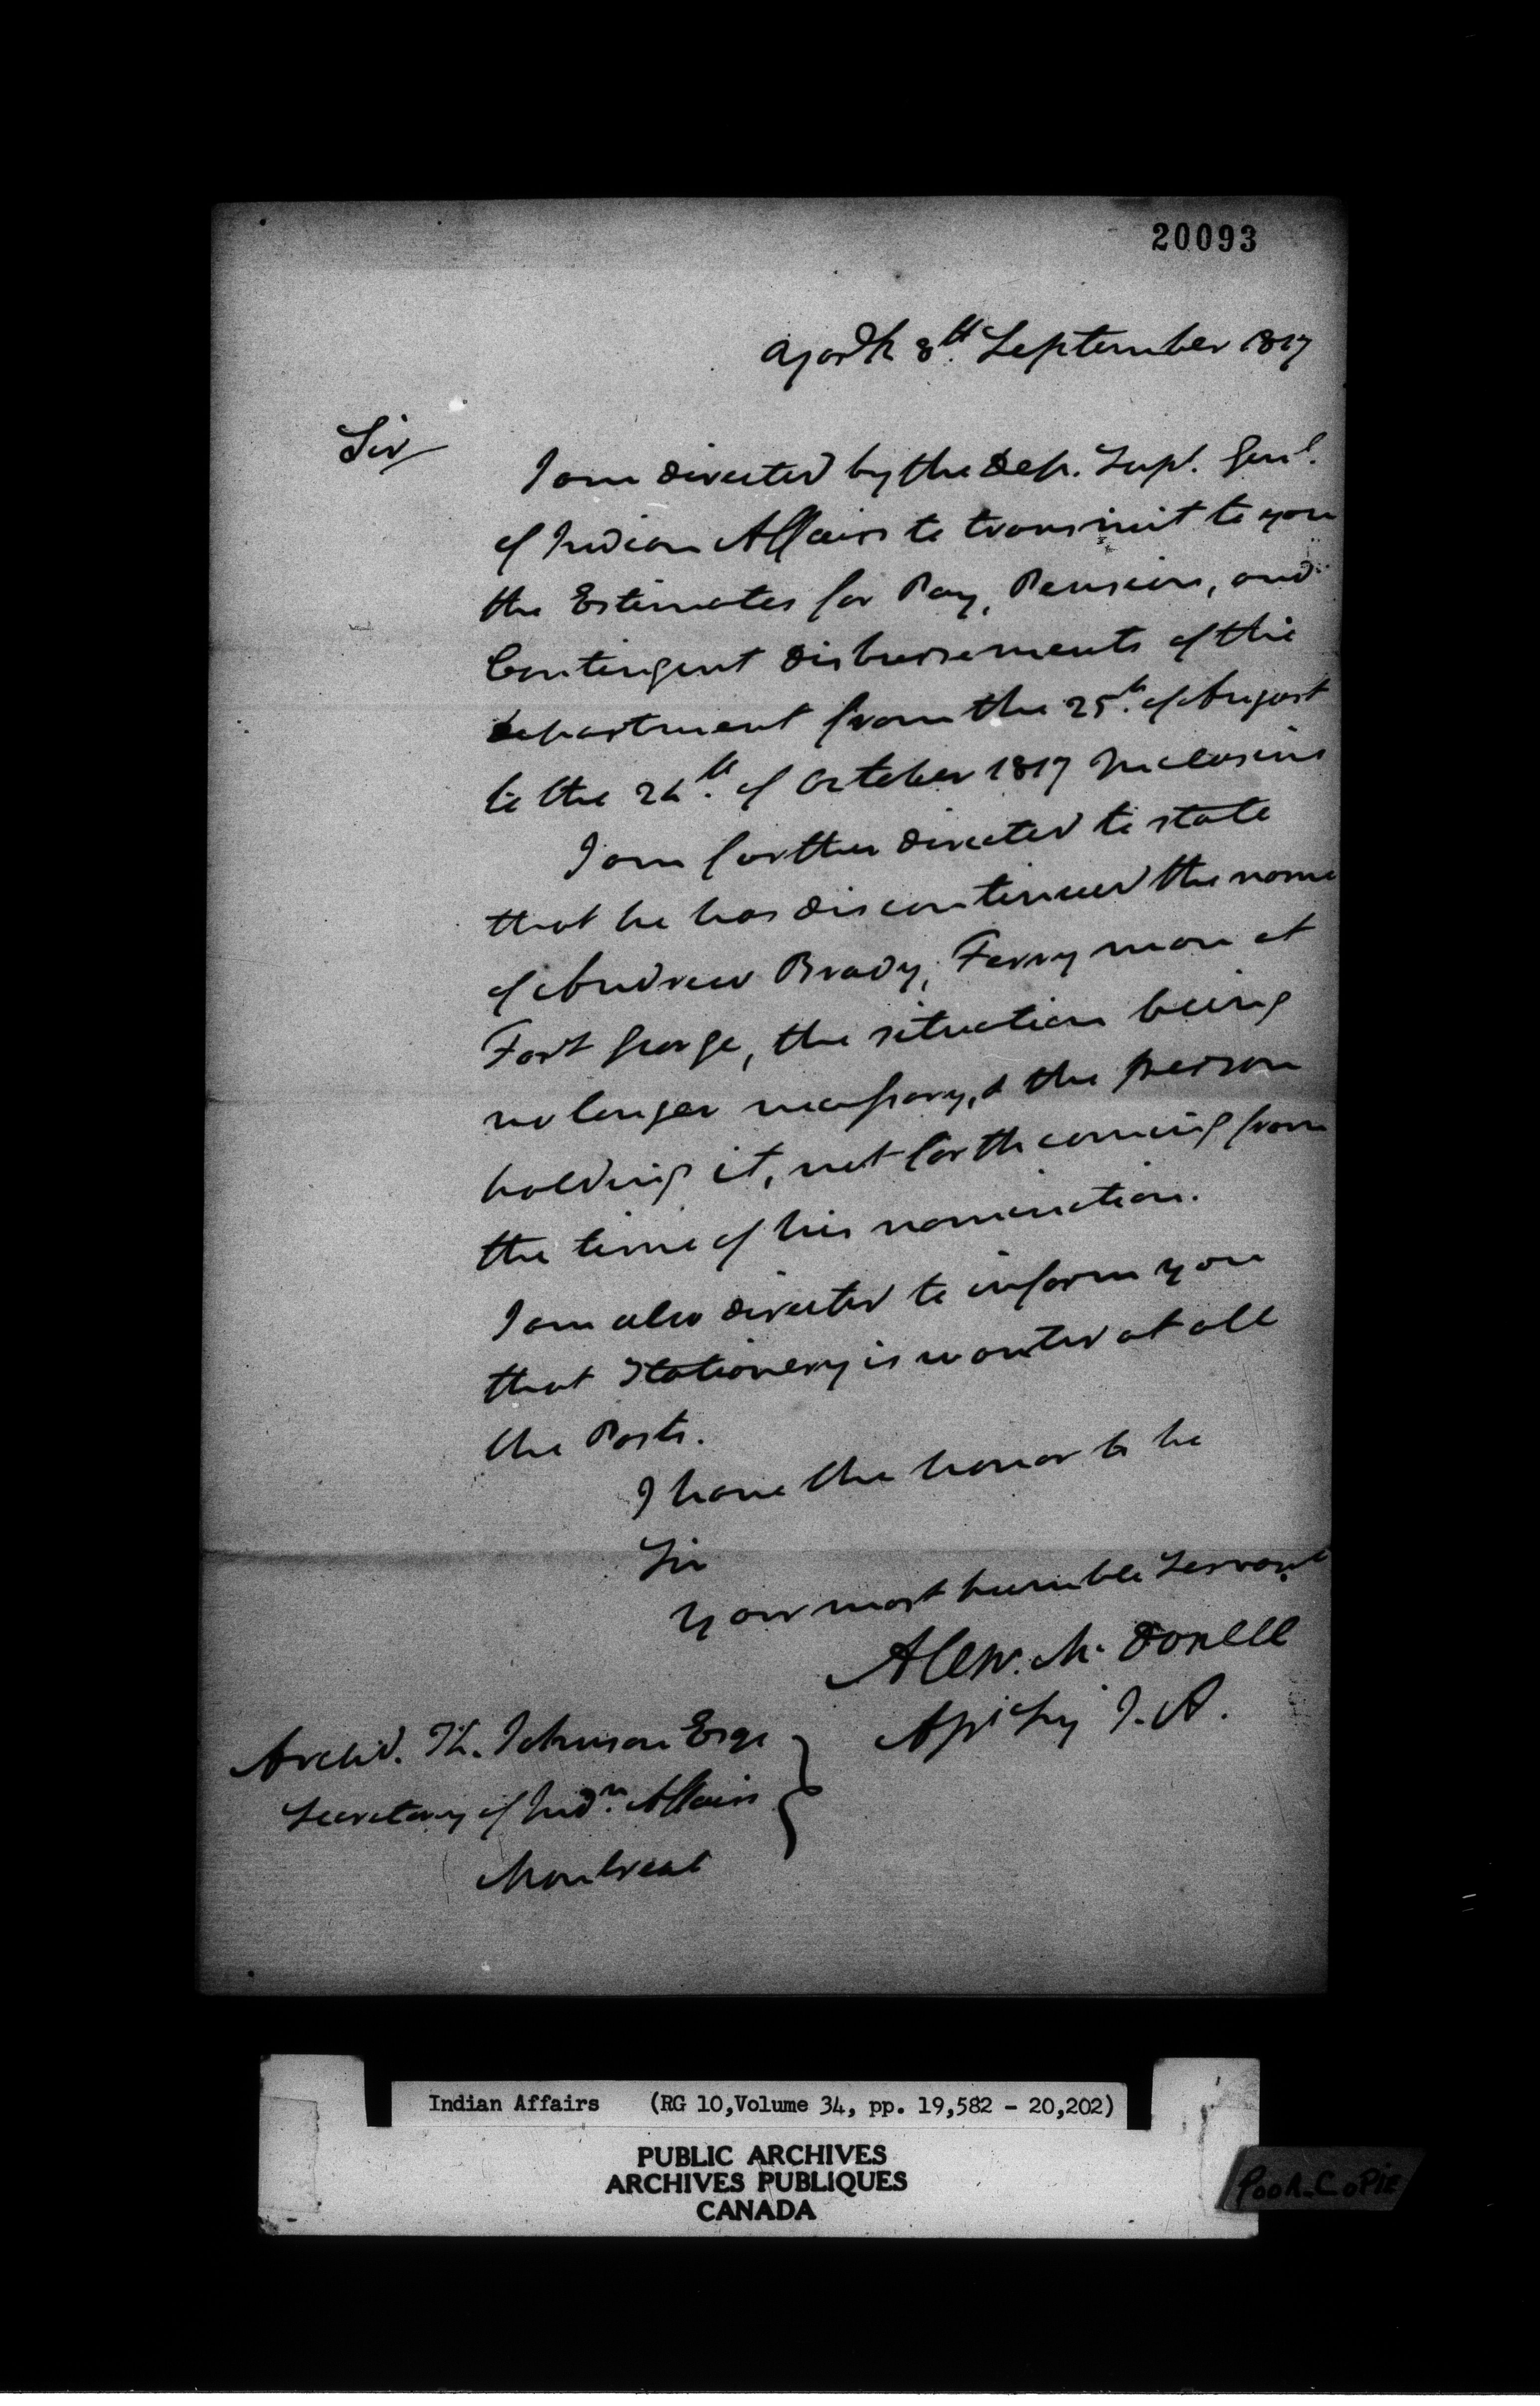 20093
York 8th. September 1817
Sir
I am directed by the Dep. Supt. Genl.
of Indian Affairs to transmit to you
the Estimates for Pay, Pensions, and
Contingent disbursements of this
department from the 25th. of August
to the 24th. of October 1817 Inclusive
I am further directed to state
that he has discontinued the name
of Andrew Brady, Ferry man at
Fort George, the situation being
no longer necessary, & the person
holding it, not forthcoming from
the time of his nomination.
I am also directed to inform you
that Stationery is wanted at all
the Posts.
I have the honor to be
Sir
your most humble Servant
Alexr. Mc. Donell
Asst Secy I. A.
Archd. K. Johnson Esqr
Secretary of Indn. Affairs
Montreal
Indian Affairs (RG 10, Volume 34, pp. 19,582 - 20,202)
PUBLIC ARCHIVES
ARCHIVES PUBLIQUES
CANADA
POOR-COPIE